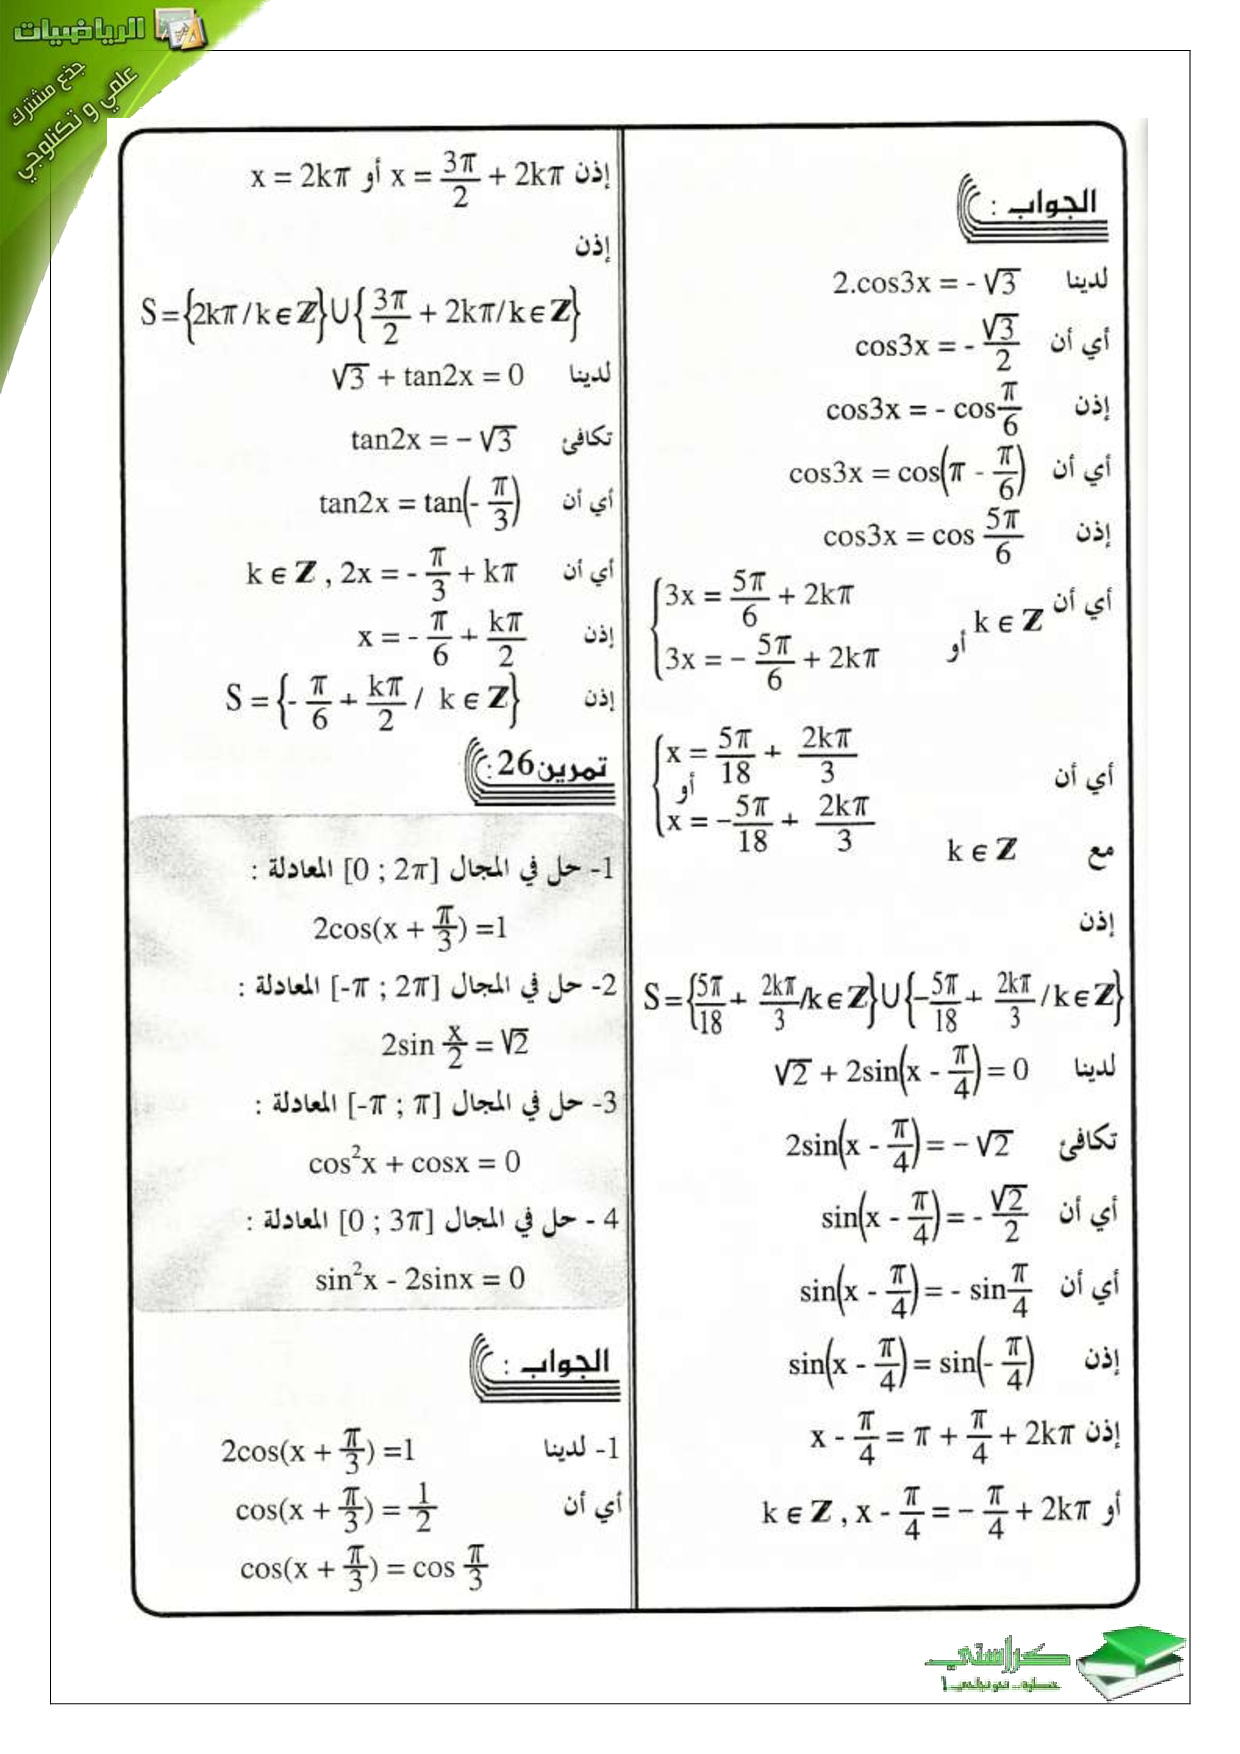 الرياضيات
جذع مشترك
علمي و تكنلوجي
الجواب :
لدينا 2.cos3x = - √3
أي أن cos3x = - √3/2
إذن cos3x = - cos π/6
أي أن cos3x = cos(π - π/6)
إذن cos3x = cos 5π/6
أي أن 3x = 5π/6 + 2kπ
k ∈ ℤ أو
3x = - 5π/6 + 2kπ
أي أن x = 5π/18 + 2kπ/3
أو
x = -5π/18 + 2kπ/3
مع k ∈ ℤ
إذن
S={5π/18 + 2kπ/3 /k∈ℤ}∪{-5π/18 + 2kπ/3 /k∈ℤ}
لدينا √2 + 2sin(x - π/4) = 0
تكافئ 2sin(x - π/4) = - √2
أي أن sin(x - π/4) = - √2/2
أي أن sin(x - π/4) = - sin π/4
إذن sin(x - π/4) = sin(- π/4)
إذن x - π/4 = π + π/4 + 2kπ
أو k ∈ ℤ , x - π/4 = - π/4 + 2kπ
إذن x = 3π/2 + 2kπ أو x = 2kπ
إذن
S={2kπ/k∈ℤ}∪{3π/2 + 2kπ/k∈ℤ}
لدينا √3 + tan2x = 0
تكافئ tan2x = - √3
أي أن tan2x = tan(- π/3)
أي أن k ∈ ℤ , 2x = - π/3 + kπ
إذن x = - π/6 + kπ/2
إذن S = {- π/6 + kπ/2 / k ∈ ℤ}
تمرين26 :
1- حل في المجال [0 ; 2π] المعادلة :
2cos(x + π/3) =1
2- حل في المجال [-π ; 2π] المعادلة :
2sin x/2 = √2
3- حل في المجال [-π ; π] المعادلة :
cos²x + cosx = 0
4 - حل في المجال [0 ; 3π] المعادلة :
sin²x - 2sinx = 0
الجواب :
1- لدينا 2cos(x + π/3) =1
أي أن cos(x + π/3) = 1/2
cos(x + π/3) = cos π/3
كراستي